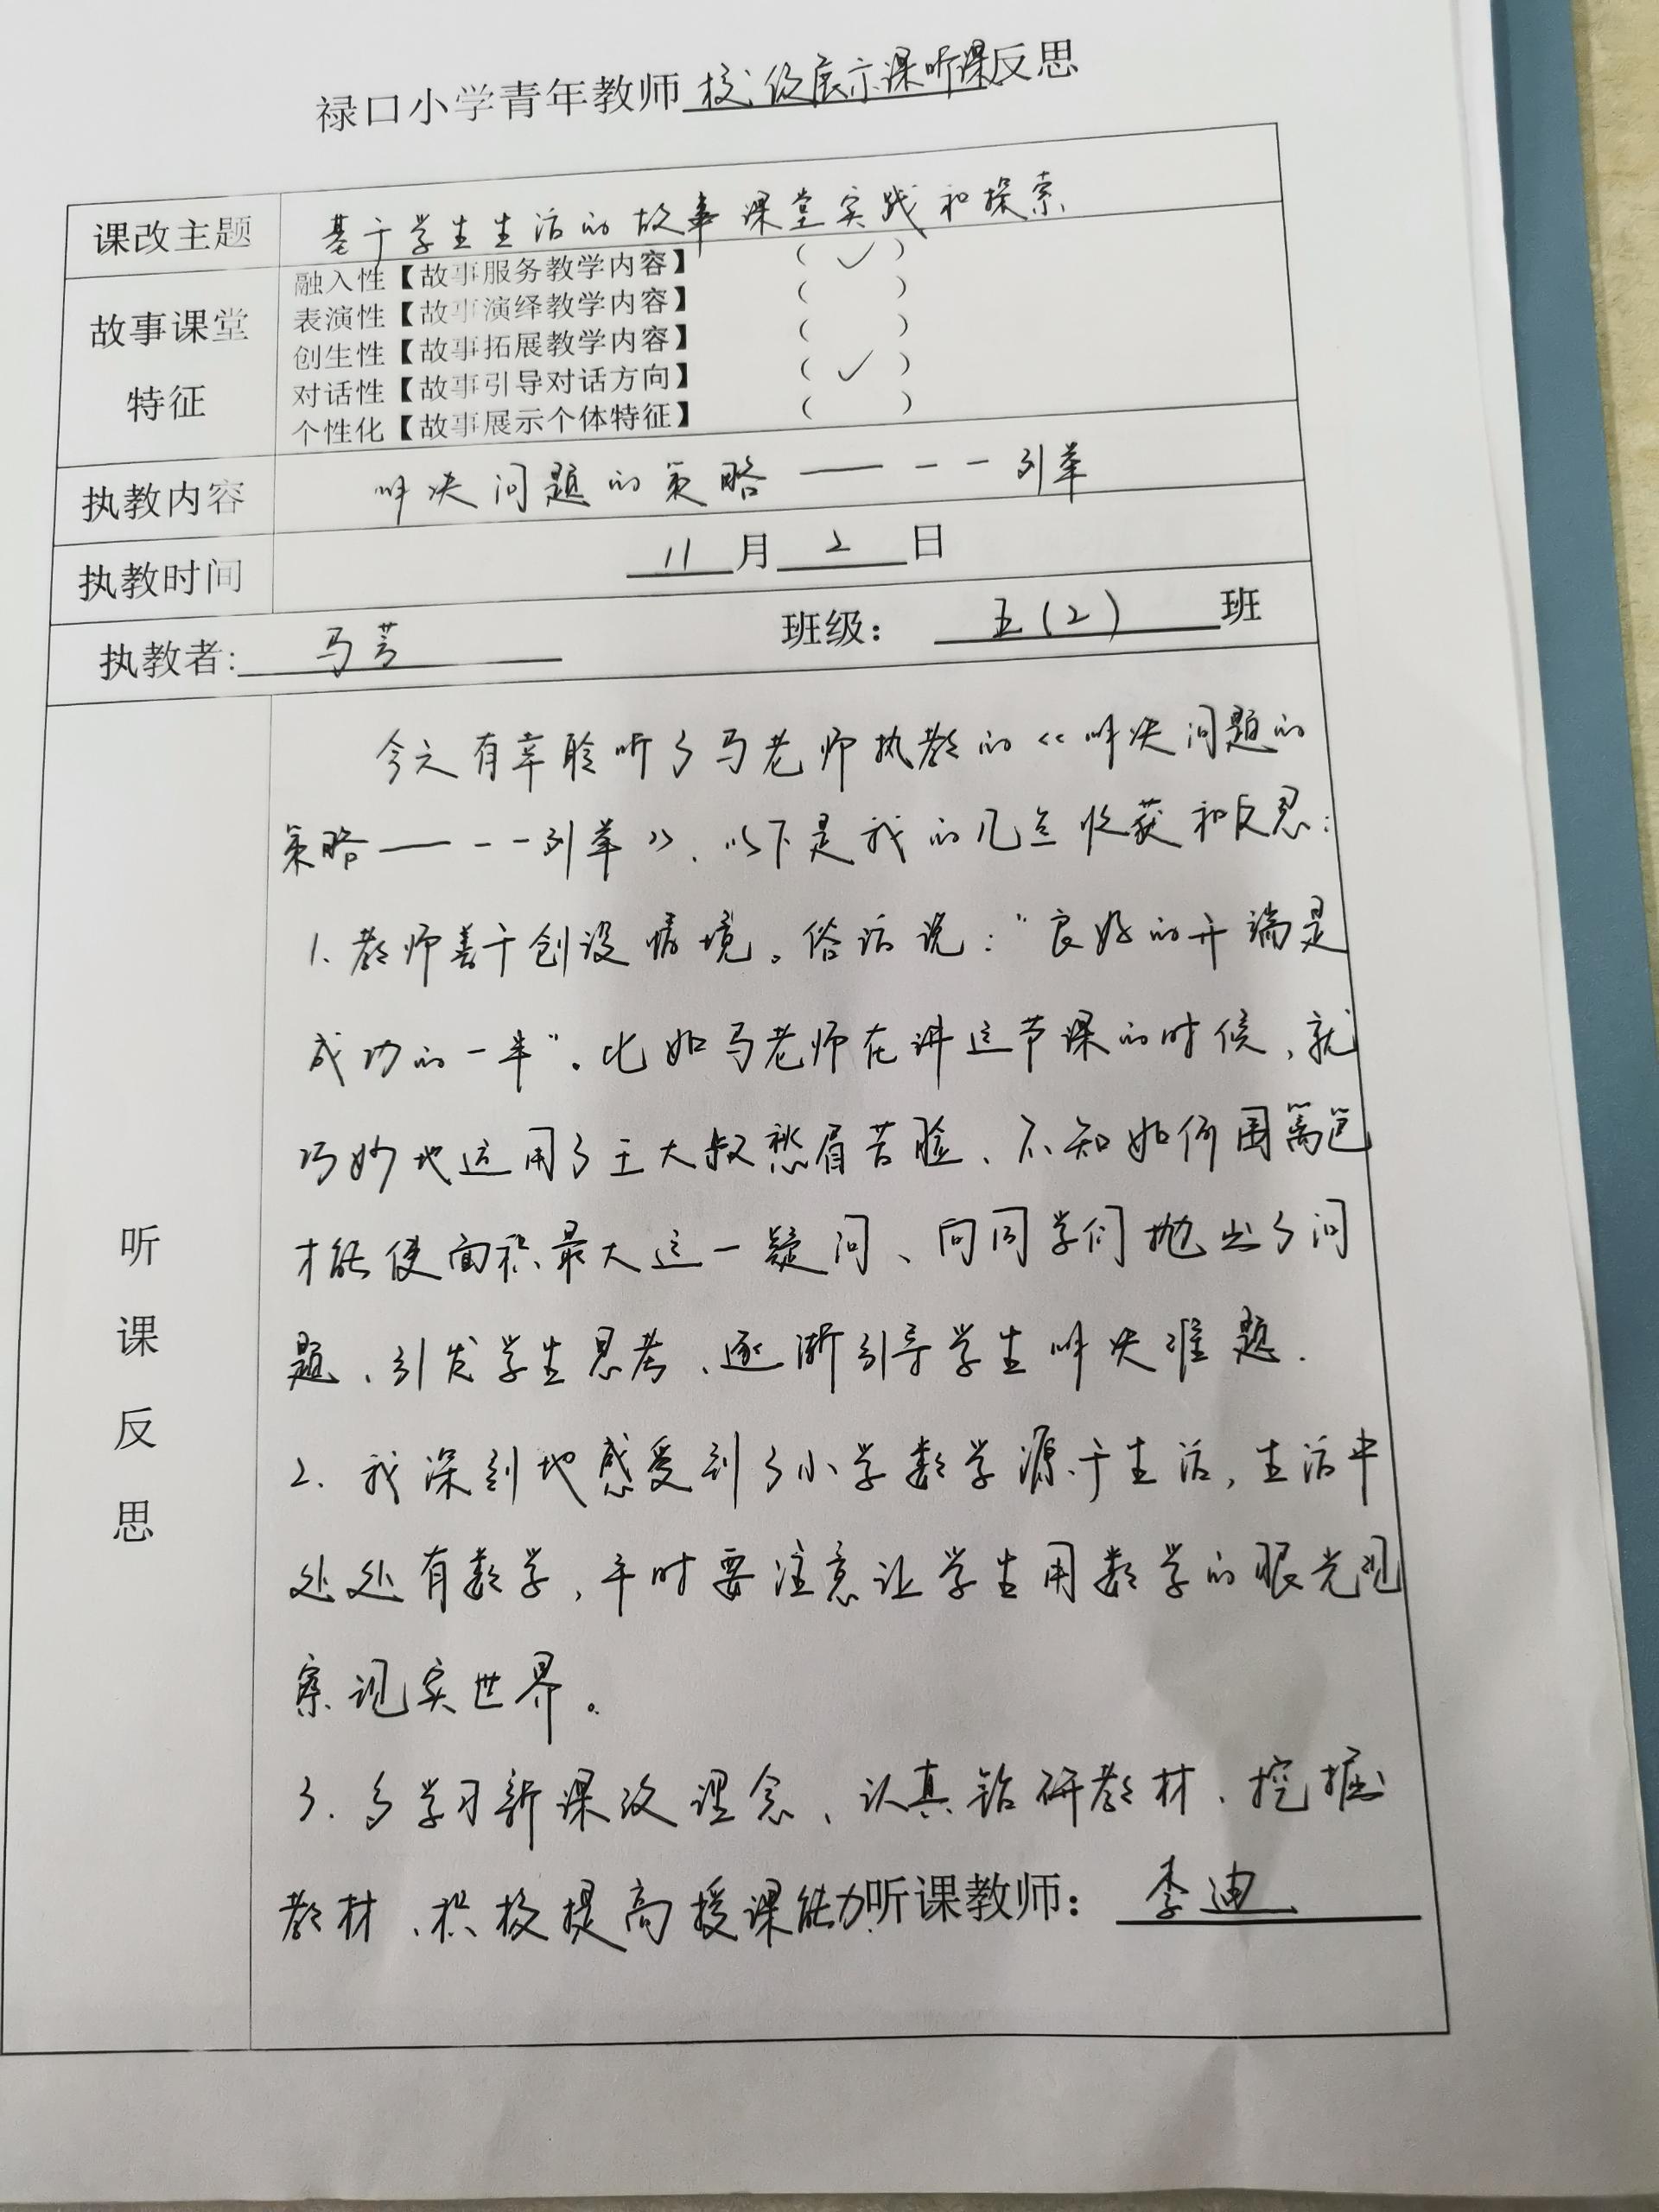 禄口小学青年教师校级展示课听课反思
课改主题 基于学生生活的故事课堂实践和探索
故事课堂特征
融入性【故事服务教学内容】 (✓)
表演性【故事演绎教学内容】 ( )
创生性【故事拓展教学内容】 ( )
对话性【故事引导对话方向】 (✓)
个性化【故事展示个体特征】 ( )
执教内容 解决问题的策略——一一列举
执教时间 11月2日
执教者: 马 班级: 五(2)班
听课反思
今天有幸聆听了马老师执教的《解决问题的
策略——一一列举》、以下是我的几点收获和反思:
1.教师善于创设情境。俗话说:“良好的开端是
成功的一半”。比如马老师在讲这节课的时候、就
巧妙地运用了王大叔愁眉苦脸、不知如何围篱笆
才能使面积最大这一疑问、向同学们抛出了问
题、引发学生思考、逐渐引导学生解决难题.
2.我深刻地感受到了小学数学源于生活,生活中
处处有数学,平时要注意让学生用数学的眼光观
察现实世界。
3.多学习新课改理念、认真钻研教材、挖掘
教材、积极提高授课能力. 听课教师: 李迪